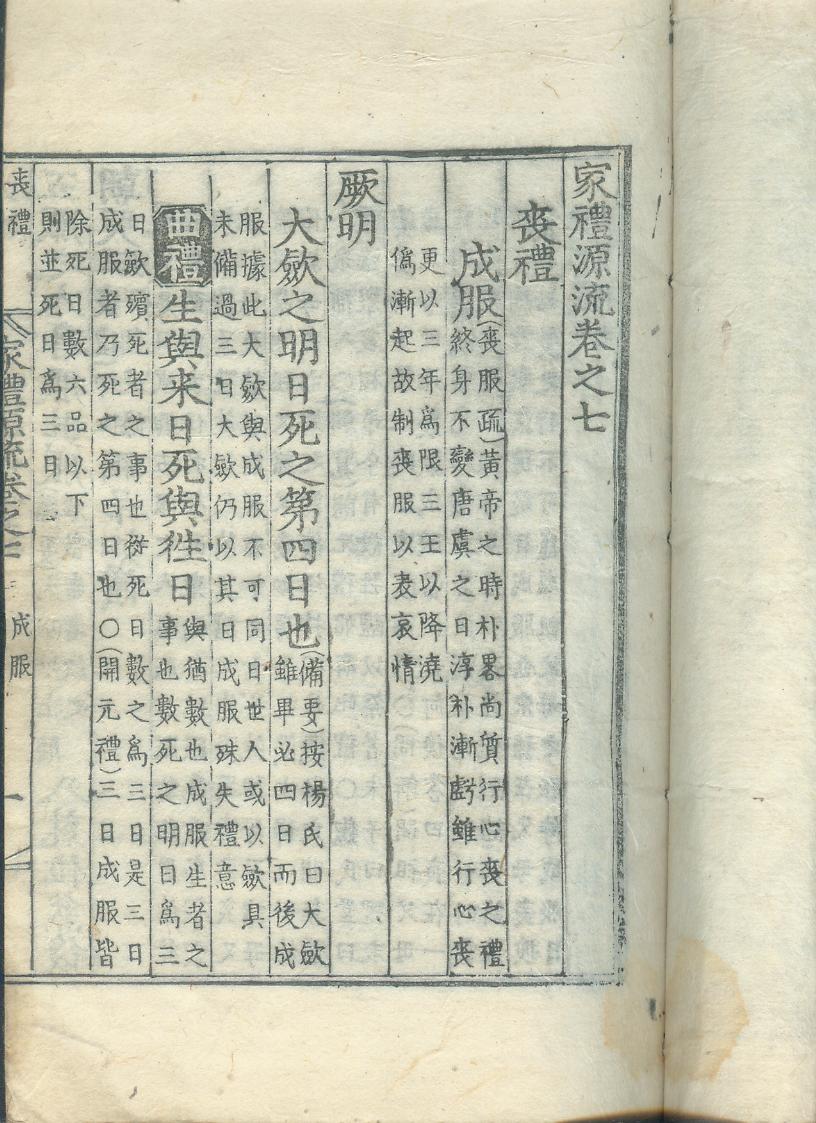 家禮源流卷之七
喪禮
成服
(喪服疏)黃帝之時朴畧尚質行心喪之禮
終身不變唐虞之日淳朴漸虧雖行心喪
更以三年爲限三王以降澆
僞漸起故制喪服以表哀情
厥明
大歛之明日死之第四日也
(備要)按楊氏曰大歛
雖畢必四日而後成
服據此大歛與成服不可同日世人或以歛具
未備過三日大歛仍以其日成服殊失禮意
曲禮生與来日死與徃日
與猶數也成服生者之
事也數死之明日爲三
日歛殯死者之事也從死日數之爲三日是三日
成服者乃死之第四日也○(開元禮)三日成服皆
除死日數六品以下
則並死日爲三日
喪禮
家禮源流卷之七
成服
一